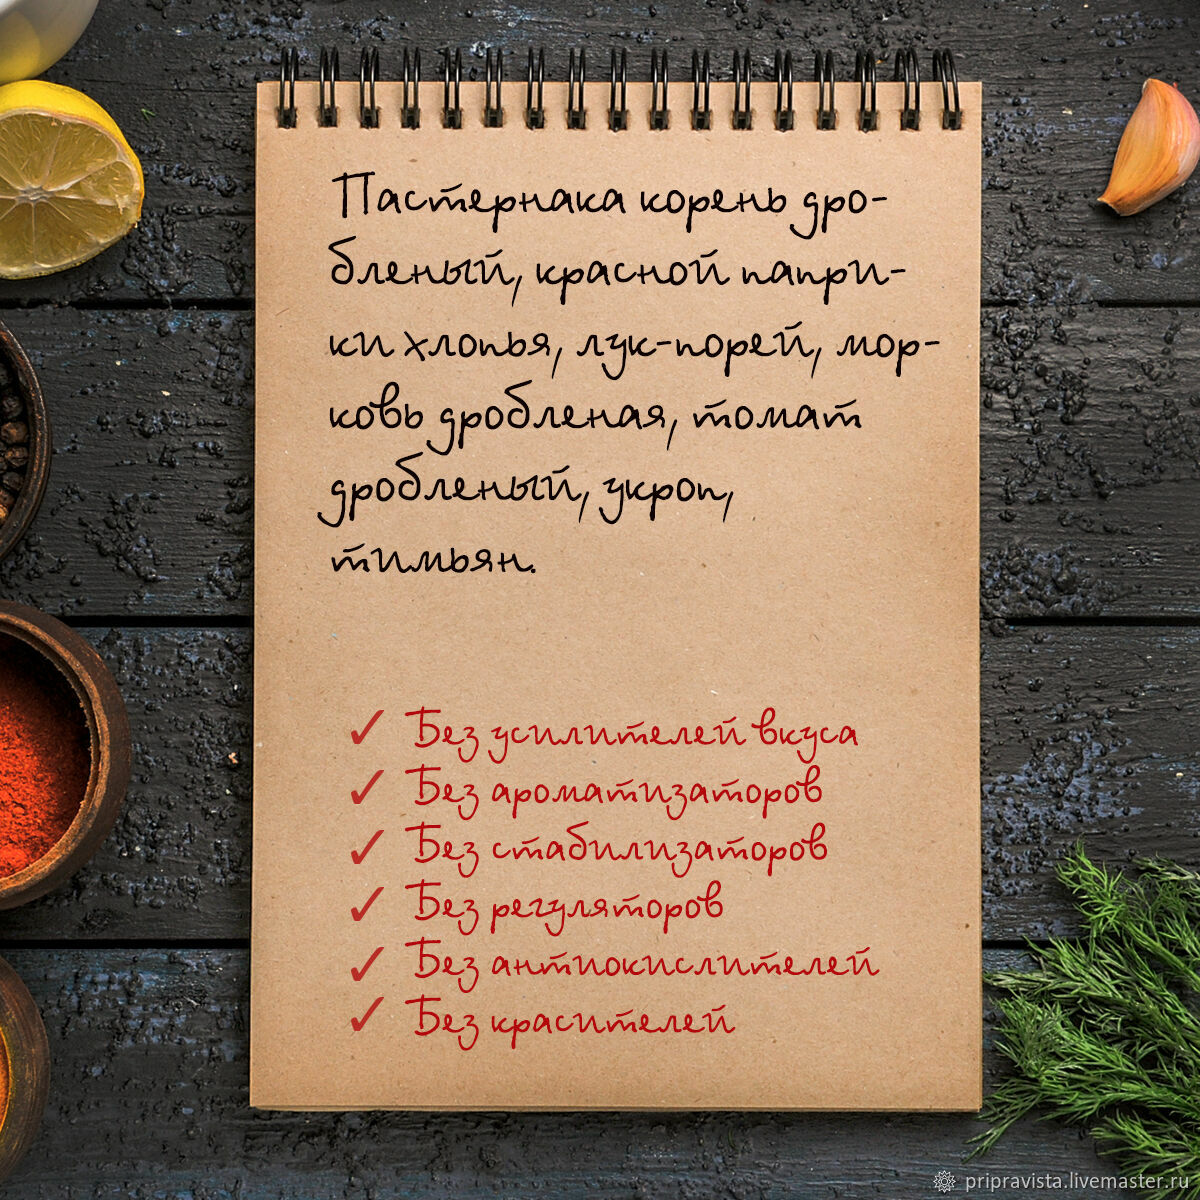 Пастернака корень дро-
бленый, красной папри-
ки хлопья, лук-порей, мор-
ковь дробленая, томат
дробленый, укроп,
тимьян.
✓ Без усилителей вкуса
✓ Без ароматизаторов
✓ Без стабилизаторов
✓ Без регуляторов
✓ Без антиокислителей
✓ Без красителей
pripravista.livemaster.ru